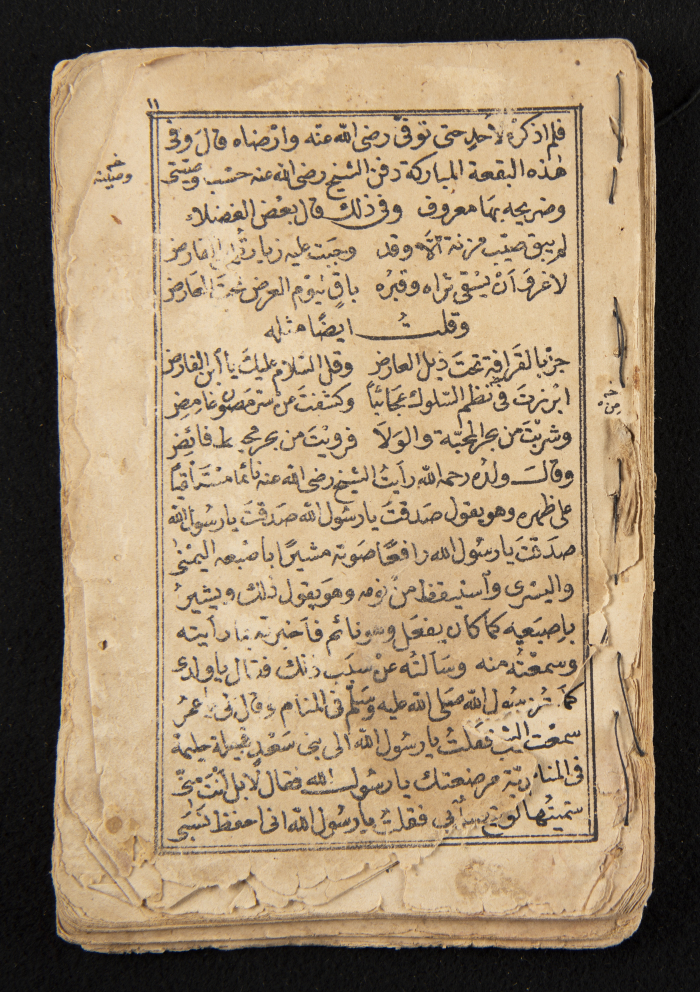 ١١
فلم اذكره لأحد حتى توفى رضى الله عنه وارضاه قال وفى
هذه البقعة المباركة دفن الشيخ رضى الله عنه حسب وصيتى
وصيته
وضريحه بها معروف وفى ذلك قال بعض الفضلاء
لم يبق صيب مزنة الا وقد وجبت عليه زيارة ابن الفارض
لا غرو أن يسقى ثراه وقبره باق ليوم العرض تحت العارض
وقلت ايضا مثله
جز بالقرافة تحت ذيل العارض وقل السلام عليك يا أبن الفارض
ابرزت فى نظم السلوك عجائبا وكشفت عن سر مصون غامض
وشربت من بحر المحبة والولا فرويت من بحر محيط فائض
وقال ولده رحمه الله رأيت الشيخ رضى الله عنه نائما مستلقيا
على ظهره وهو يقول صدقت يا رسول الله صدقت يا رسول الله
صدقت يا رسول الله رافعا صوته مشيرا باصبعه اليمنى
واليسرى واستيقظ من نومه وهو يقول ذلك ويشير
باصبعيه كما كان يفعل وهو نائم فأخبرته بما رأيته
وسمعته منه وسألته عن سبب ذلك فقال يا ولدى
رسول الله صلى الله عليه وسلم فى المنام وقال لى يا عمر
فقلت يا رسول الله الى بنى سعد قبيلة حليمة
مرضعتك يا رسول الله فقال لا بل أنت منى
فقلت يا رسول الله انى احفظ نسبى